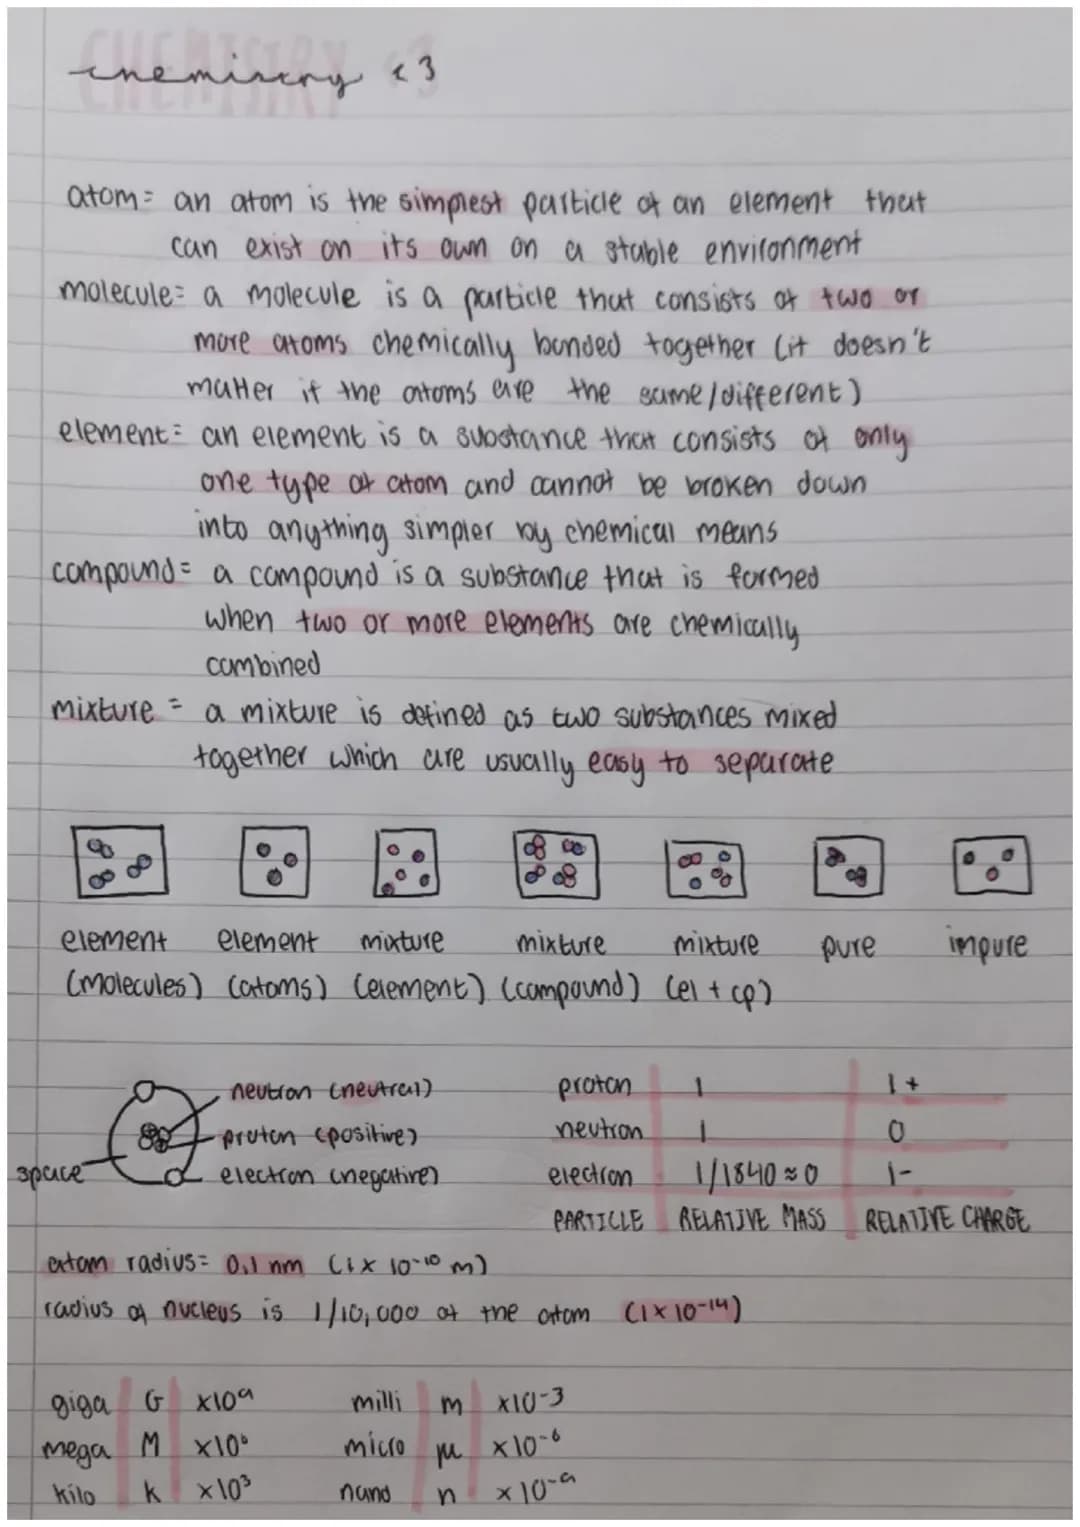 CHEMISTRY
chemistry <3
atom= an atom is the simplest particle of an element that
can exist on its own on a stable environment
molecule= a molecule is a particle that consists of two or
more atoms chemically bonded together (it doesn't
matter if the atoms are the same/different)
element= an element is a substance that consists of only
one type of atom and cannot be broken down
into anything simpler by chemical means
compound= a compound is a substance that is formed
when two or more elements are chemically
combined
mixture = a mixture is defined as two substances mixed
together which are usually easy to separate
element element mixture mixture mixture pure impure
(molecules) (atoms) (element) (compound) (el + cp)
neutron (neutral)
proton (positive)
space
electron (negative)
proton 1 1+
neutron 1 0
electron 1/1840≈0 1-
PARTICLE RELATIVE MASS RELATIVE CHARGE
atom radius= 0,1 nm (1x 10-¹⁰ m)
radius of nucleus is 1/10,000 of the atom (1x10-¹⁴)
giga G x10⁹ milli m x10-3
mega M x10⁶ micro µ x10-⁶
kilo k x10³ nano n x10-⁹